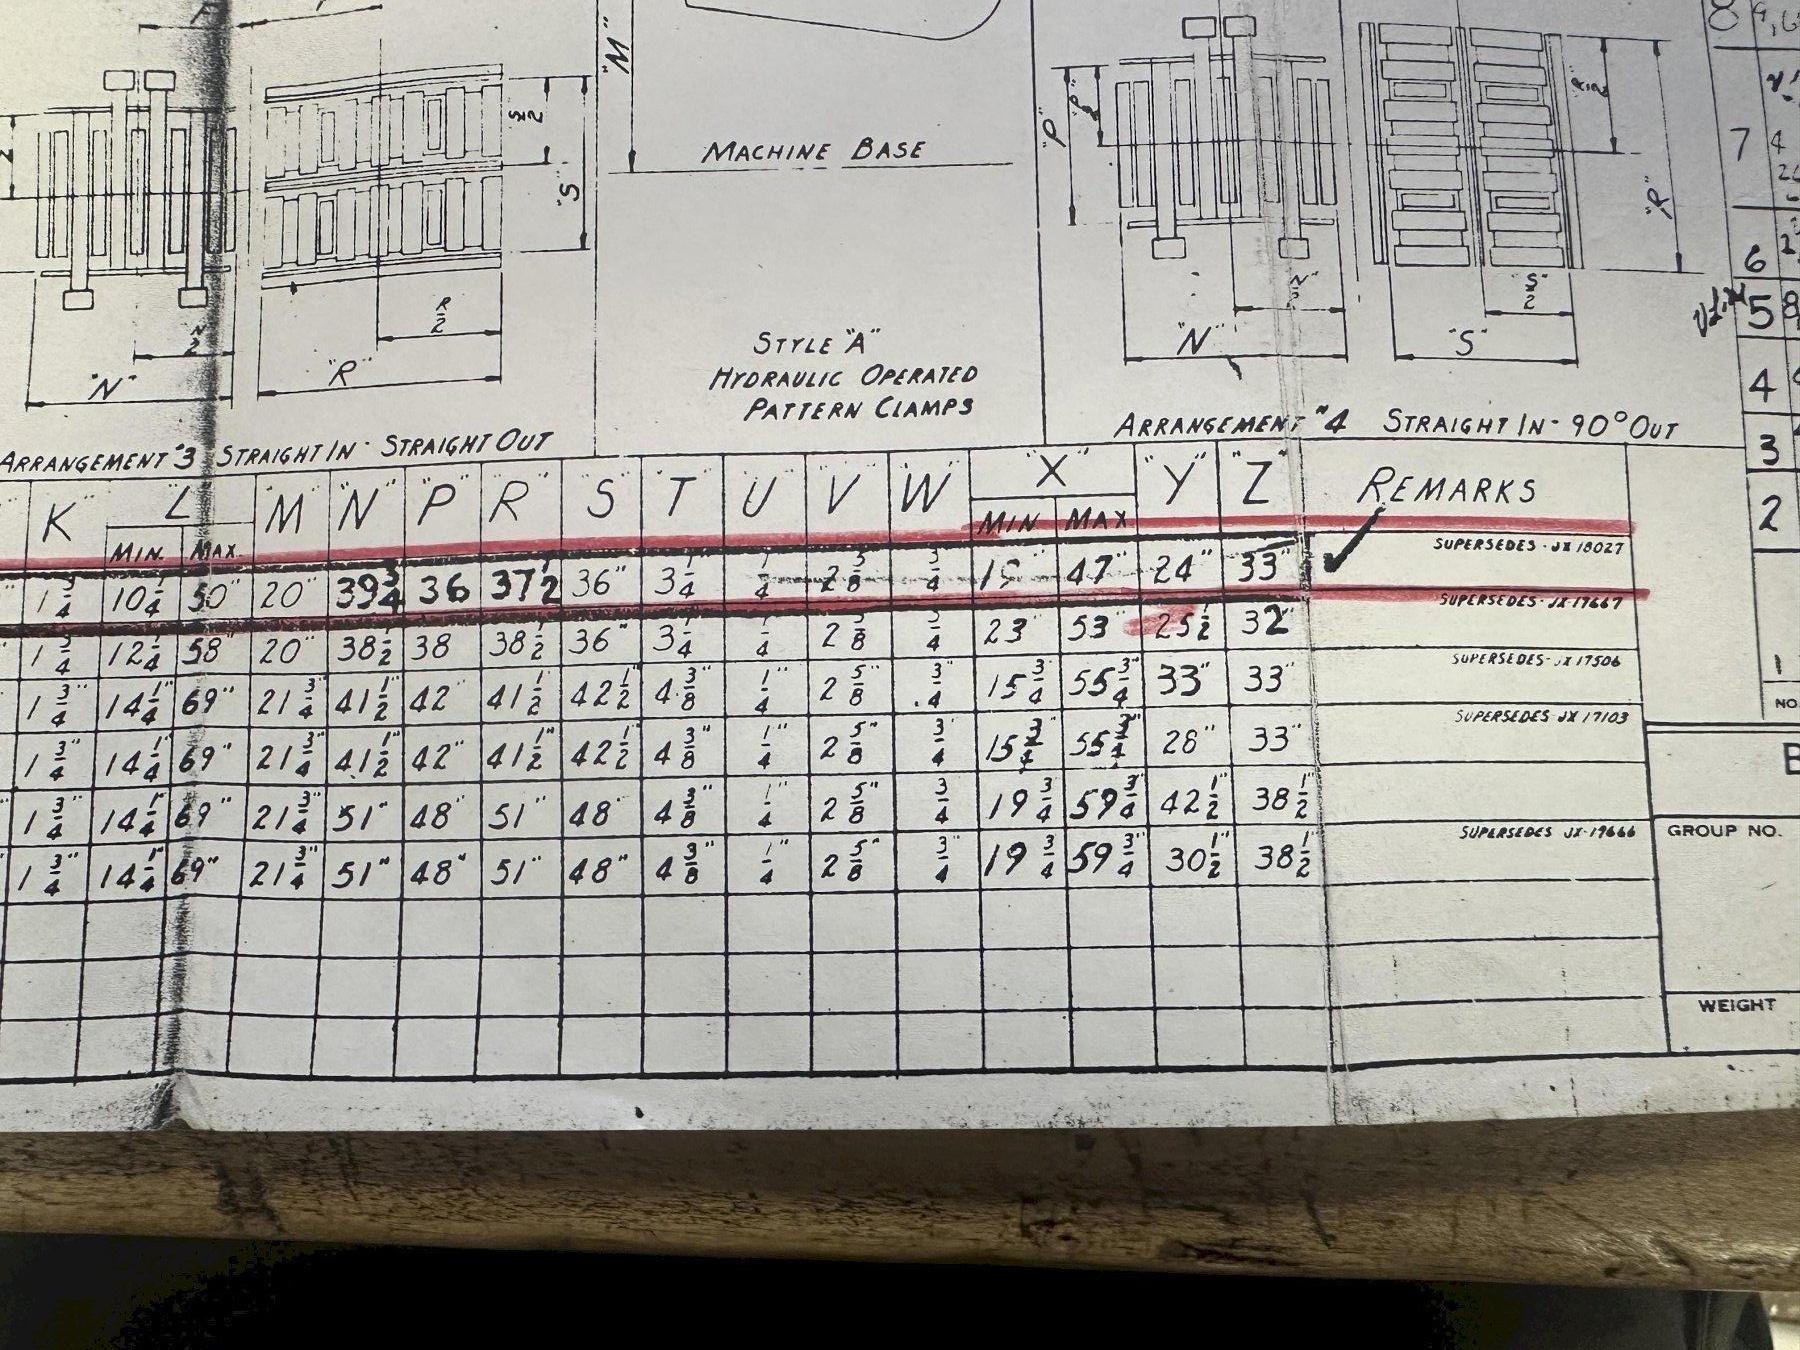 "M"
"P"
P/2
R/2
"R"
S/2
"S"
MACHINE BASE
R/2
"R"
N/2
"N"
STYLE "A"
HYDRAULIC OPERATED
PATTERN CLAMPS
N/2
"N"
S/2
"S"
ARRANGEMENT #3 STRAIGHT IN - STRAIGHT OUT
ARRANGEMENT #4 STRAIGHT IN - 90° OUT
8
7 4
6
5 8
4
3
2
1
NO
K "L" "M" "N" "P" "R" "S" "T" "U" "V" "W" "X" "Y" "Z" REMARKS
MIN. MAX. MIN MAX
1 3/4 10 1/4 50" 20" 39 3/4 36 37 1/2 36" 3 1/4 1/4 2 5/8 3/4 47" 24" 33" SUPERSEDES - JX 18027
1 3/4 12 1/4 58" 20" 38 1/2 38 38 1/2 36" 3 1/4 1/4 2 5/8 3/4 23" 53" 25 1/2 32" SUPERSEDES - JX 17667
1 3/4" 14 1/4" 69" 21 3/4" 41 1/2" 42" 41 1/2" 42 1/2" 4 3/8" 1/4" 2 5/8" 3/4" 15 3/4 55 3/4" 33" 33" SUPERSEDES - JX 17506
1 3/4" 14 1/4" 69" 21 3/4" 41 1/2" 42" 41 1/2" 42 1/2 4 3/8" 1/4" 2 5/8" 3/4" 15 3/4 55 3/4" 28" 33" SUPERSEDES JX 17103
1 3/4" 14 1/4" 69" 21 3/4" 51" 48" 51" 48" 4 3/8" 1/4" 2 5/8" 3/4 19 3/4 59 3/4" 42 1/2" 38 1/2"
1 3/4" 14 1/4" 69" 21 3/4" 51" 48" 51" 48" 4 3/8" 1/4" 2 5/8" 3/4" 19 3/4 59 3/4" 30 1/2" 38 1/2" SUPERSEDES JX-17666
GROUP NO.
WEIGHT